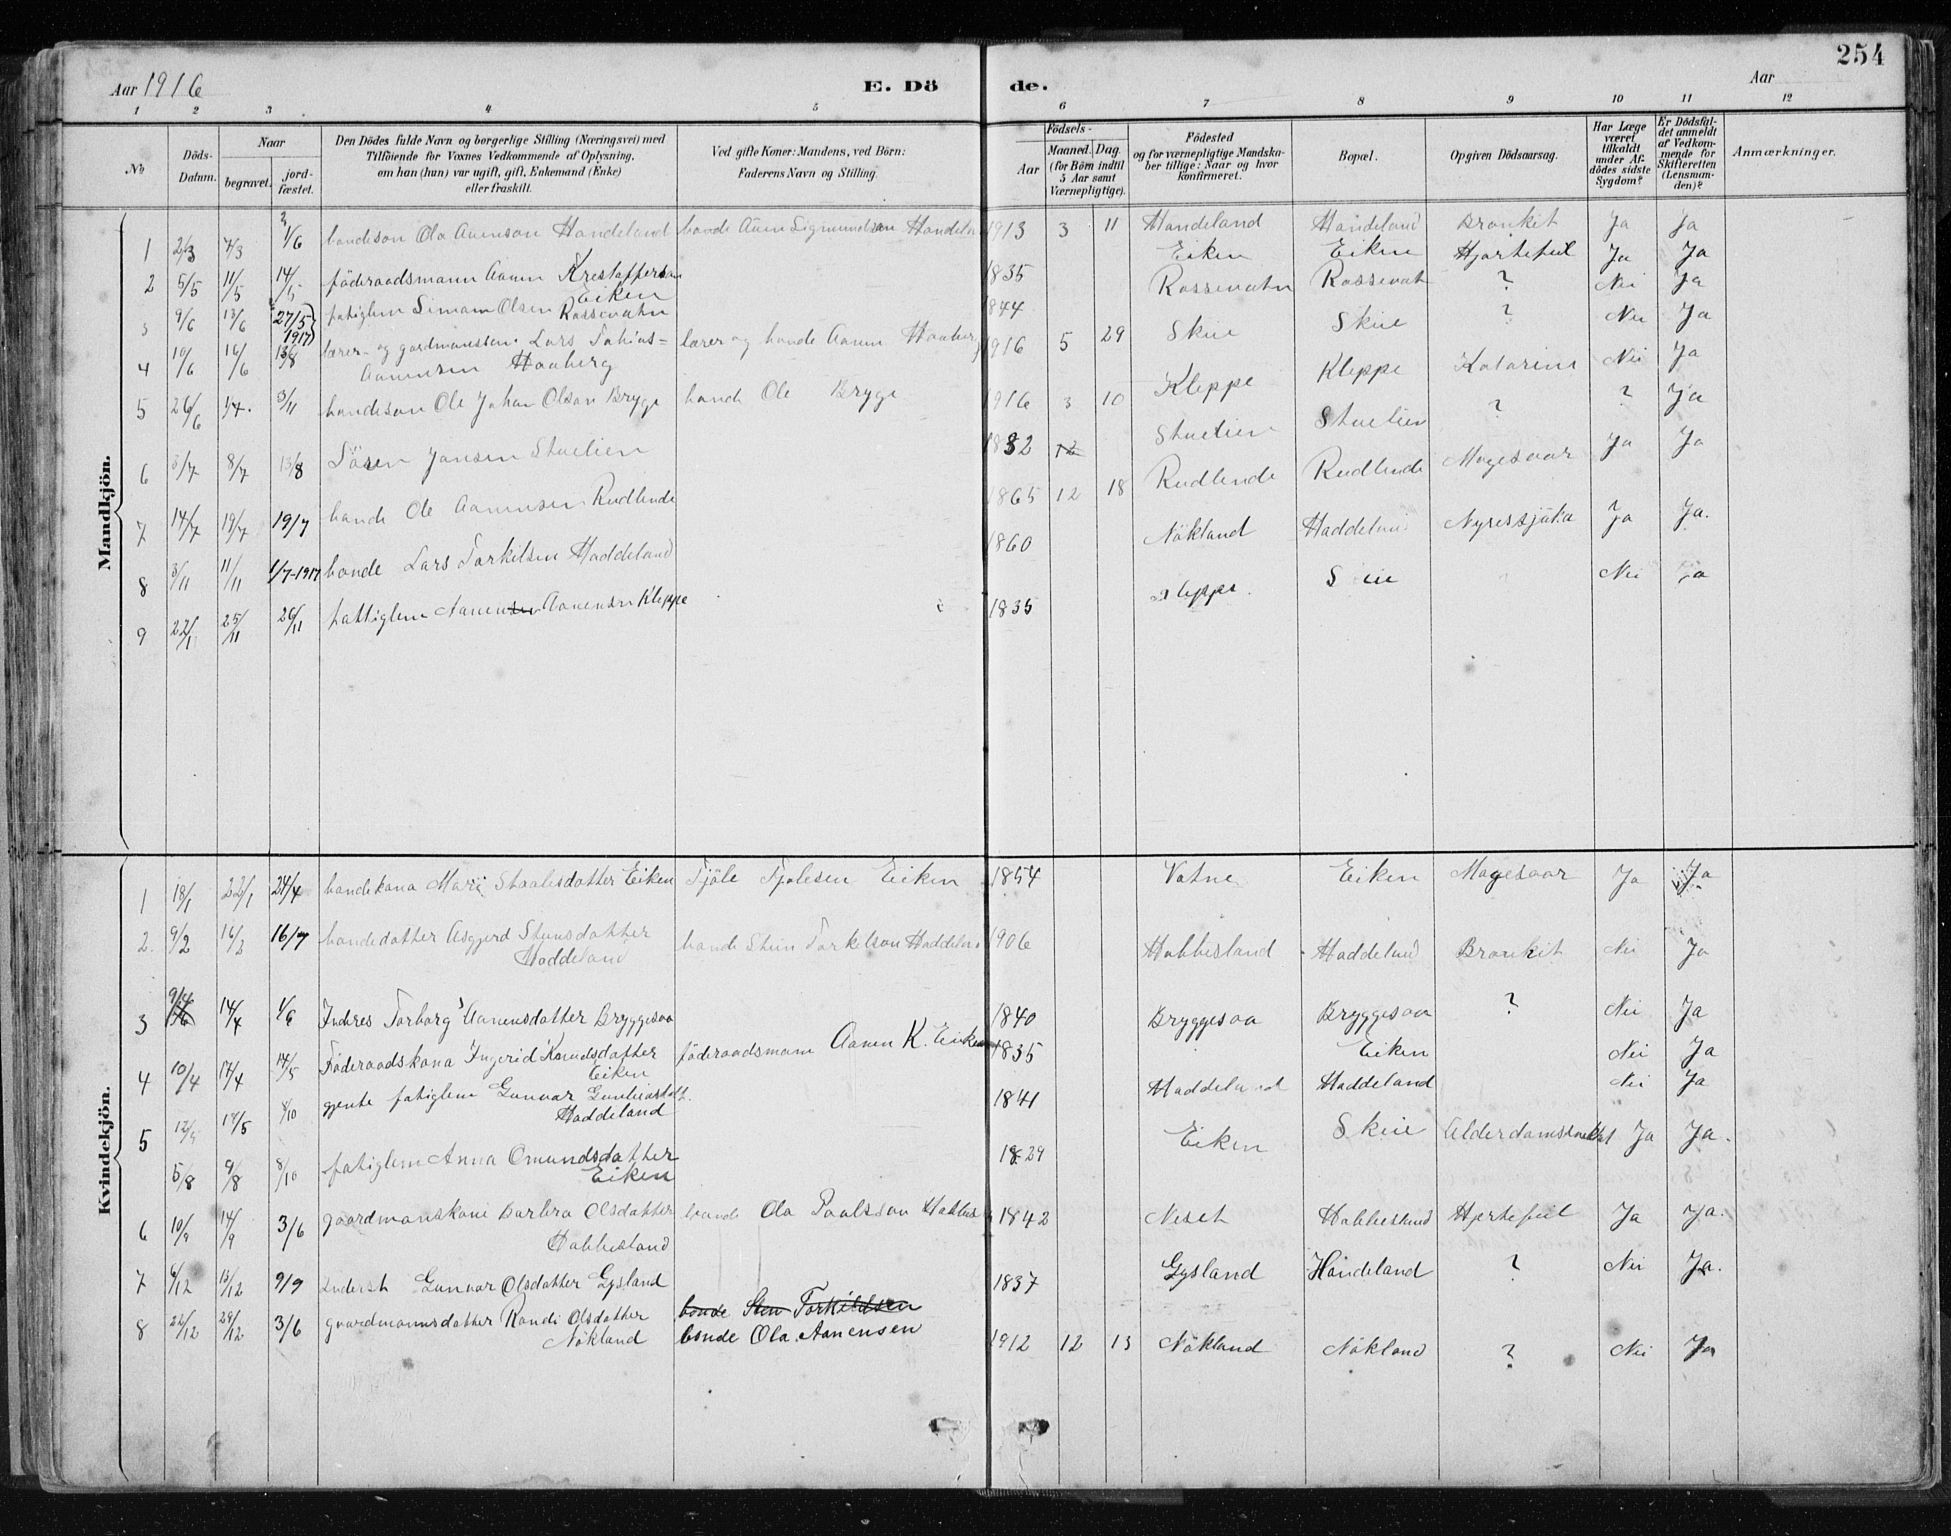 254
Aar 1916 E. Dö de. Aar
1 2 3 4 5 6 7 8 9 10 11 12
No
Döds-Datum.
Naar
begravet.
jord-fæstet.
Den Dödes fulde Navn og borgerlige Stilling (Næringsvei) med
Tilföiende for Voxnes Vedkommende af Oplysning,
om han (hun) var ugift, gift, Enkemand (Enke)
eller fraskilt.
Ved gifte Koner: Mandens, ved Börn:
Faderens Navn og Stilling.
Födsels-
Aar
Maaned. Dag.
(for Börn indtil
5 Aar samt
Værnepligtige).
Födested
og for værnepligtige Mandska-
ber tillige: Naar og hvor
konfirmeret.
Bopæl.
Opgiven Dödsaarsag.
Har Læge
været
tilkaldt
under Af-
dödes sidste
Sygdom?
Er Dödsfal-
det anmeldt
af Vedkom-
mende for
Skifteretten
(Lensman-
den)?
Anmærkninger.
Mandkjön.
1 2/3 7/3 1/6 bondeson Ola Aanenson Handeland bonde Aanen Sigmundson Handeln 1913 3 11 Handeland Handeland Bronkit Ja Ja
2 5/5 11/5 14/5 föderaadsmann Aanen Krestofferson Eiken 1835 Eiken Eiken Hjartefeil Ja Ja
3 9/6 13/6 27/5 1917 fatiglem Simom Olsen Rossevatn 1844 Rossevatn Rossevatn ? Nei Ja
4 10/6 16/6 13/8 lærer- og gardmannssen. Lars Tobias=
Aanensen Haaberg lærer og bonde Aanen Haaberg 1916 5 29 Skeie Skeie ? Nei Ja
5 26/6 1/7. 3/11 bondeson Ole Johan Olson Bryge bonde Ole Bryge 1916 3 10 Kleppe Kleppe Katarim Nei Ja
6 3/7 8/7 13/8 Sören Jansen Stuelien 1832 Stuelien Stuelien ? ? Ja
7 14/7 19/7 19/7 bonde Ole Aanensen Rudlende 1865 12 18 Rudlende Rudlende Magesaar Ja Ja
8 3/11 11/11 1/7-1917 bonde Lars Torkilsen Haddeland 1860 Nökland Haddeland Nyresjuka Ja Ja.
9 25/11 26/11 fattiglem Aanen Aanensen Kleppe 1835 Kleppe. Skeie Nei Ja
Kvindekjön.
1 18/1 22/1 24/4 bondekona Mari Staalesdotter Eiken Tjöle Tjolesen Eiken 1854 Vatne Eiken Magesaar Ja Ja
2. 9/2 16/2 16/7 bondedotter Asgjerd Steinsdotter
Haddeland bonde Stein Torkelson Haddeln 1906 Habbesland Haddeland Bronkit Nei Ja
3 9/4 14/4 1/6 Inderes Torborg Aanensdatter Bryggesaa 1840 Bryggesaa Bryggesaa ? Nei Ja
4 10/4 17/4 14/5 Föderaadskona Ingerid Knudsdatter
Eiken föderaadsmann Aanen K. Eiken 1835 Eiken Nei Ja
5 17/5 8/10 gjente fatiglem Gunvor
Haddeland 1841 Haddeland Haddeland Nei Ja
5/8 9/8 8/10 fatiglem Anna Omundsdatter
Eiken 1829 Eiken Skeie Ja Ja.
6 10/9 14/9 3/6 gaardmanskone Barbra Olsdatter
Habbesland bonde Ola Paalsson Habbes 1842 Neset Habbesland Hjertefeil Ja Ja.
7 6/12 13/12 9/9 Inderst Gunvor Olsdatter Gysland 1837 Gysland Handeland ? Nei Ja.
8 22/12 29/12 3/6 gaardmannsdatter Randi Olsdatter
Nökland bonde Sten Torkildsen
bonde Ola Aanensen 1912 12 13 Nökland Nökland ? Nei Ja